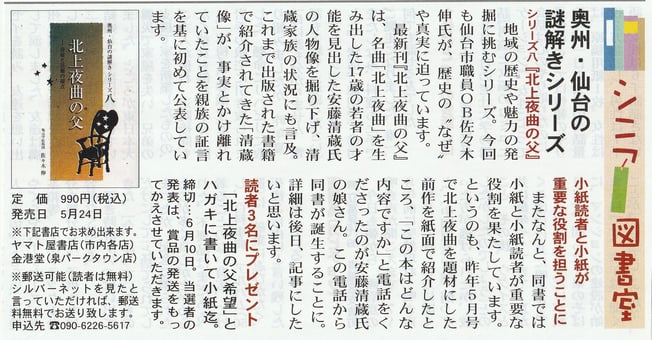 シニア図書室
奥州・仙台の
謎解きシリーズ
シリーズ八『北上夜曲の父』
地域の歴史や魅力の発
掘に挑むシリーズ。今回
も仙台市職員OB佐々木
伸氏が、歴史の〝なぜ〟
や真実に迫っています。
最新刊『北上夜曲の父』
は、名曲「北上夜曲」を生
み出した17歳の若者の才
能を見出した安藤清蔵氏
の人物像を掘り下げ、清
蔵家族の状況にも言及。
これまで出版された書籍
で紹介されてきた「清蔵
像」が、事実とかけ離れ
ていたことを親族の証言
を基に初めて公表してい
ます。
小紙読者と小紙が
重要な役割を担うことに
またなんと、同書では
小紙と小紙読者が重要な
役割を果たしています。
というのも、昨年5月号
で北上夜曲を題材にした
前作を紙面で紹介したと
ころ、「この本はどんな
内容ですか」と電話をく
ださったのが安藤清蔵氏
の娘さん。この電話から
同書が誕生することに。
詳細は後日、記事にした
いと思います。
読者3名にプレゼント
「北上夜曲の父希望」と
ハガキに書いて小紙迄。
締切…6月10日。当選者の
発表は、賞品の発送をもっ
てかえさせていただきます。
奥州・仙台の謎解きシリーズ 八
北上夜曲の父
佐々木 伸
定 価 990円(税込)
発売日 5月24日
※下記書店でお求め出来ます。
ヤマト屋書店(市内各店)
金港堂(泉パークタウン店)
※郵送可能(読者は無料)
シルバーネットを見たと
言っていただければ、郵送
料無料でお送り致します。
申込先 ☎090-6226-5617